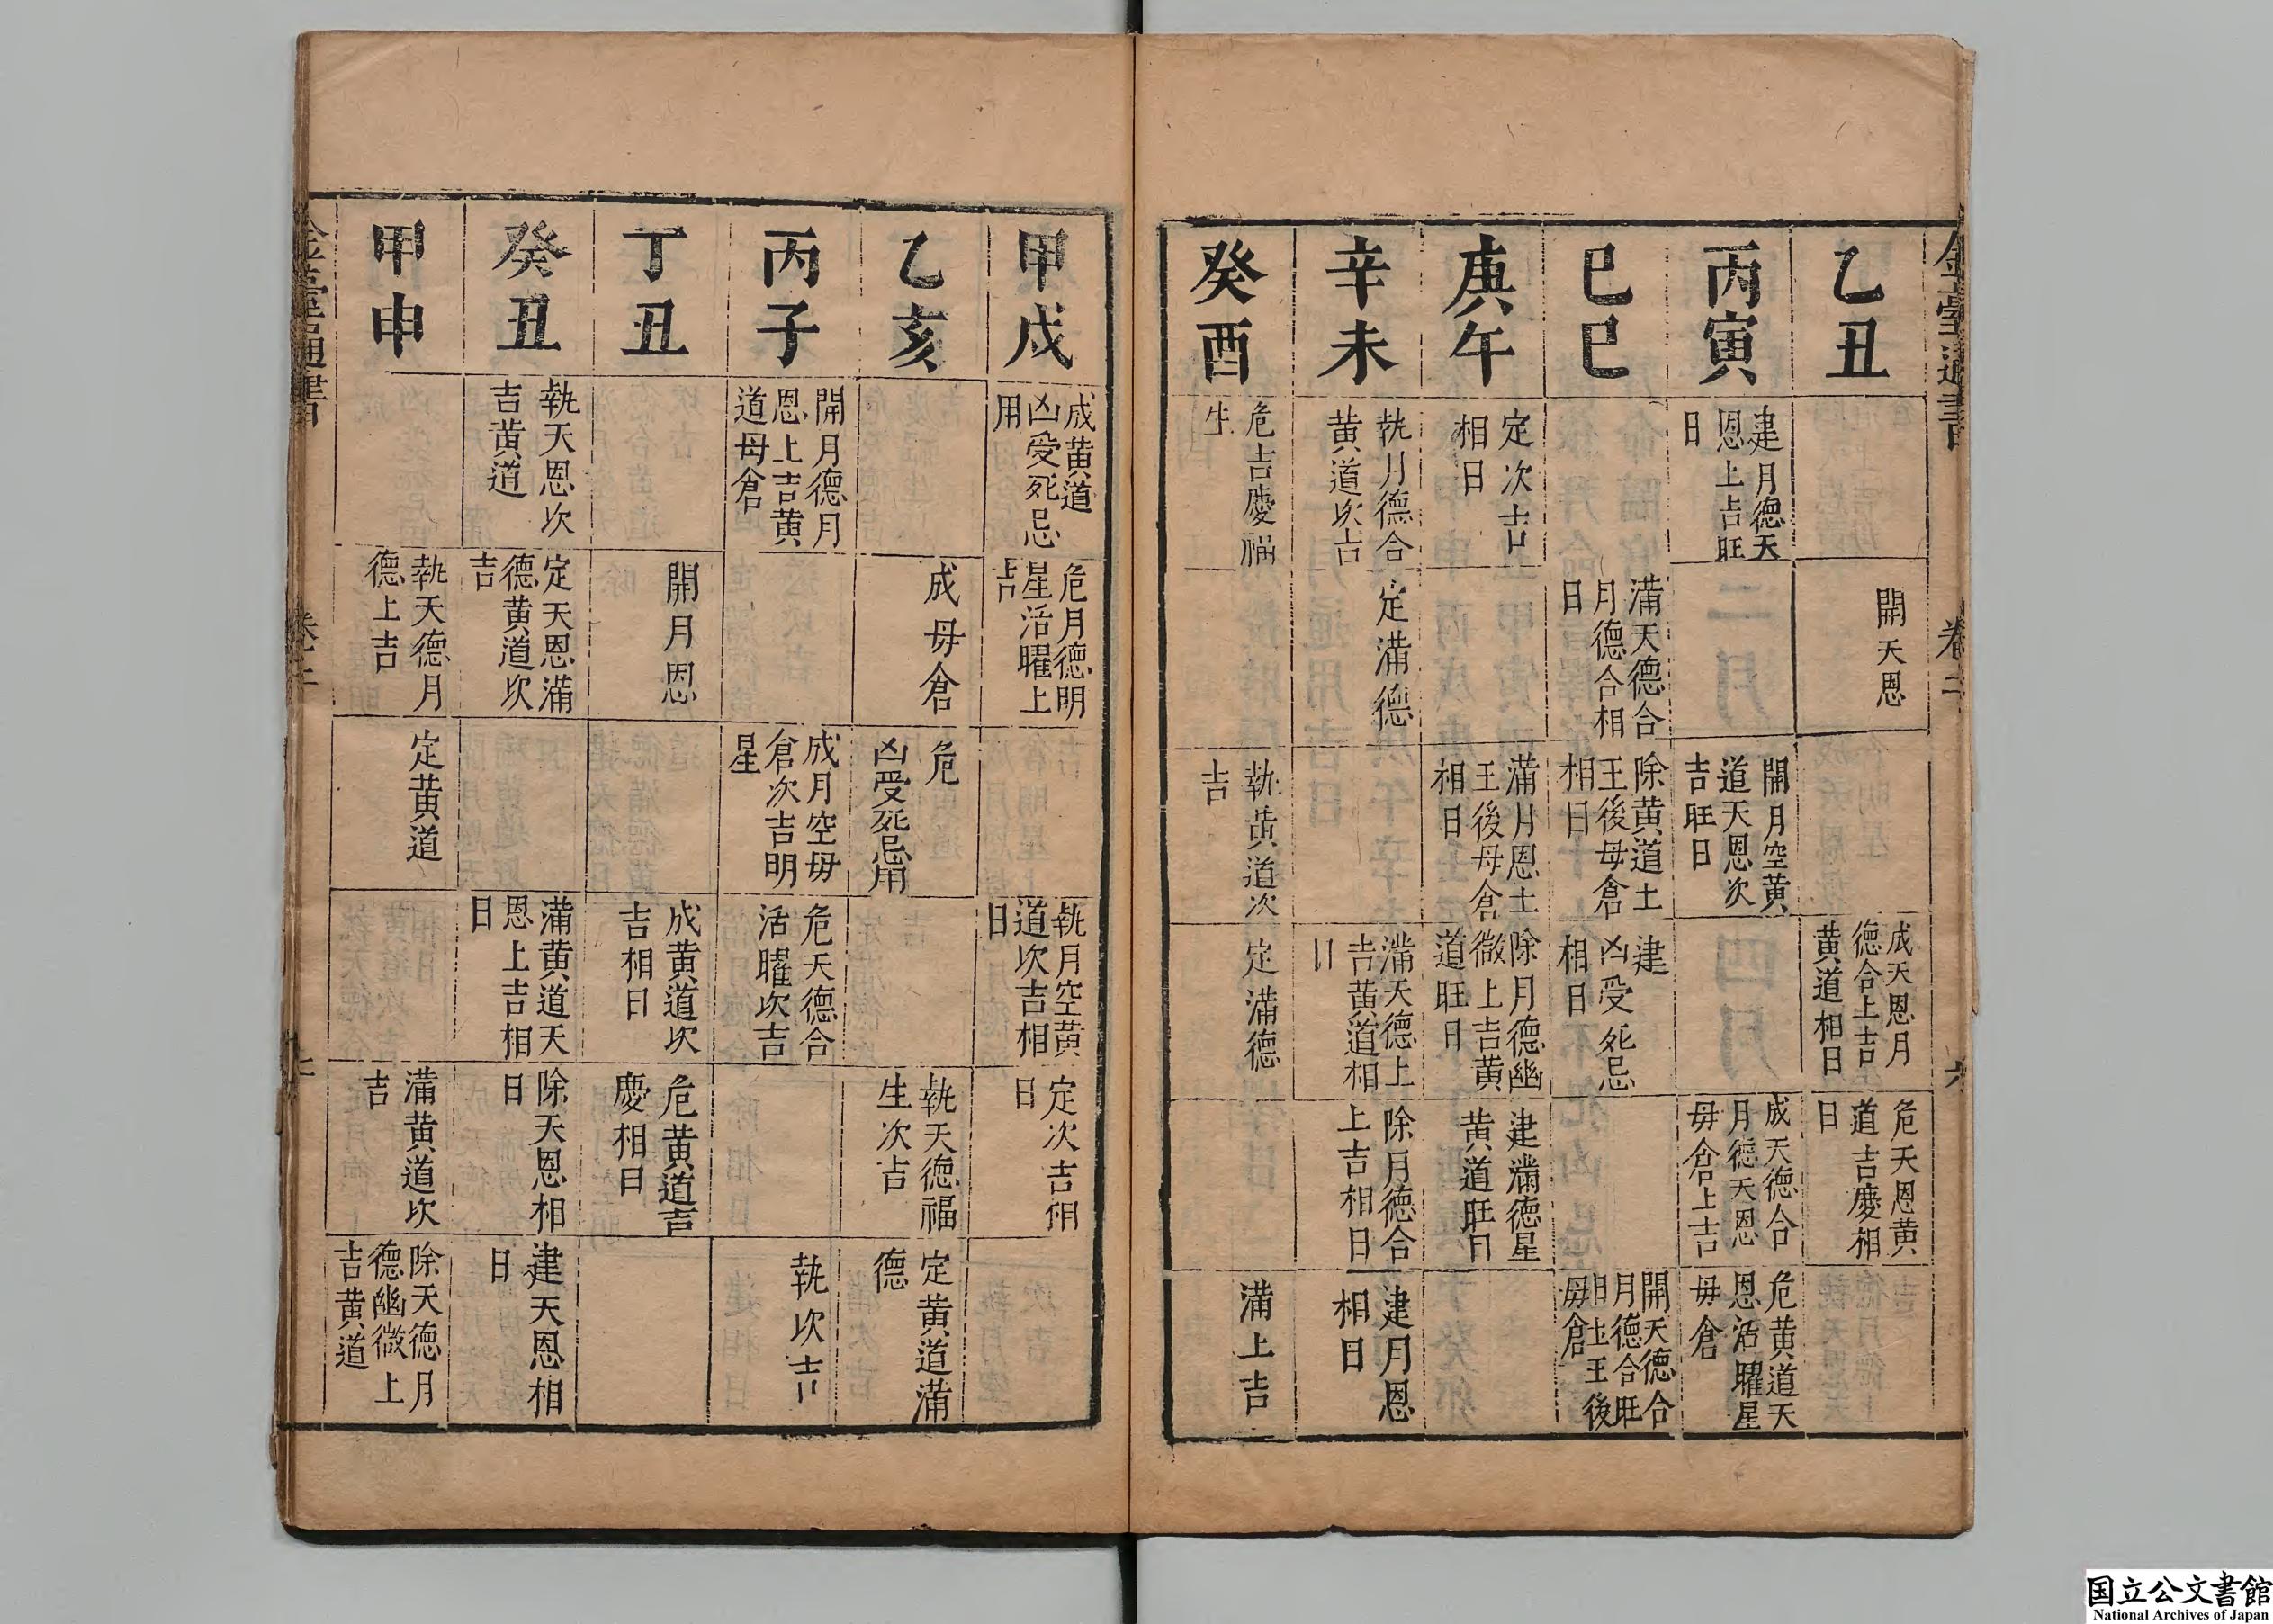 乙丑
開天恩
成天恩月
德合上吉
黄道相日
危天恩黄
道吉慶相
日
丙寅
建月德天
恩上吉旺
日
開月空黄
道天恩次
吉旺日
成天德合
月德天恩
毋倉上吉
危黄道天
恩活曜星
毋倉
巳巳
滿天德合
月德合相
日
除黄道土
王後毋倉
相日
建
凶受死忌
相日
開天德合
月德合旺
日土王後
毋倉
庚午
定次吉
相日
滿月恩土
王後毋倉
相日
除月德幽
微上吉黄
道旺日
建滿德星
黄道旺日
辛未
執月德合
黄道次吉
定滿德
滿天德上
吉黄道相
日
除月德合
上吉相日
建月恩
相日
癸酉
危吉慶福
生
執黄道次
吉
定滿德
滿上吉
甲戌
成黄道
凶受死忌
用
危月德明
星活曜上
吉
執月空黄
道次吉相
日
定次吉相
日
乙亥
成毋倉
危
凶受死忌用
執天德福
生次吉
定黄道滿
德
丙子
開月德月
恩上吉黄
道毋倉
成月空毋
倉次吉明
星
危天德合
活曜次吉
執次吉
丁丑
開月恩
成黄道次
吉相日
危黄道吉
慶相日
癸丑
執天恩次
吉黄道
定天恩滿
德黄道次
吉
滿黄道天
恩上吉相
日
除天恩相
日
建天恩相
日
甲申
執天德月
德上吉
定黄道
滿黄道次
吉
除天德月
德幽微上
吉黄道
国立公文書館
National Archives of Japan